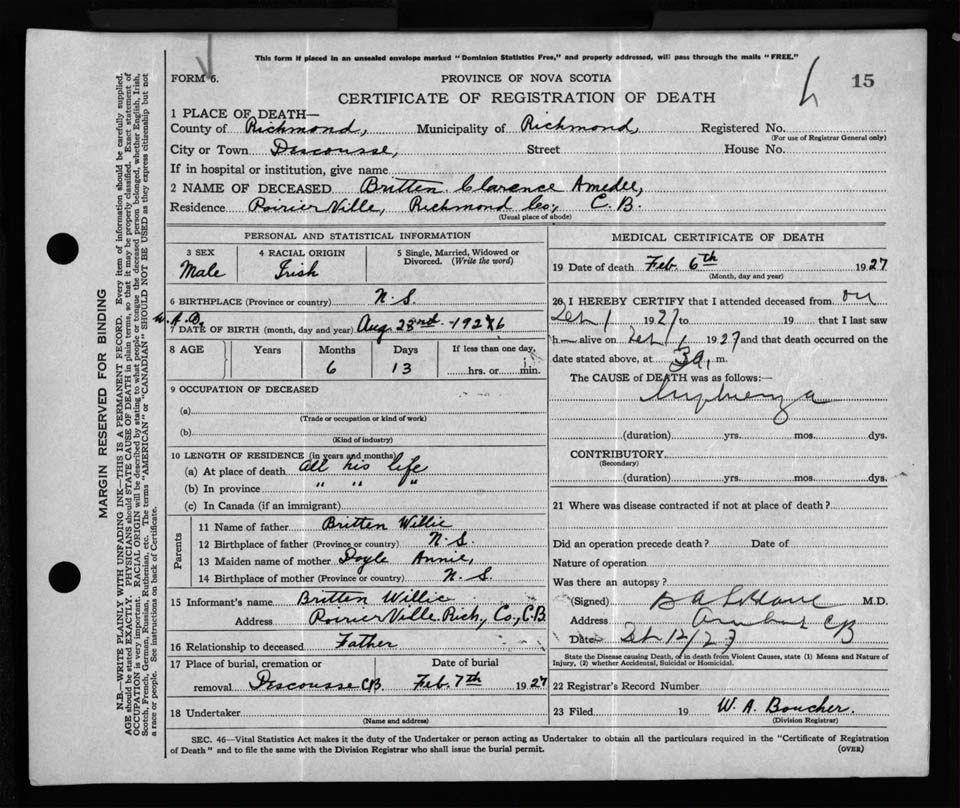 This form if placed in an unsealed envelope marked "Dominion Statistics Free," and properly addressed, will pass through the mails "FREE."
FORM 6. PROVINCE OF NOVA SCOTIA 15
CERTIFICATE OF REGISTRATION OF DEATH
1 PLACE OF DEATH—
County of Richmond, Municipality of Richmond, Registered No.
(For use of Registrar General only)
City or Town Descousse, Street House No.
If in hospital or institution, give name
2 NAME OF DECEASED Britten Clarence Amedee,
Residence Poirier Ville, Richmond Co, C.B.
(Usual place of abode)
PERSONAL AND STATISTICAL INFORMATION
3 SEX 4 RACIAL ORIGIN 5 Single, Married, Widowed or Divorced. (Write the word)
Male Irish
6 BIRTHPLACE (Province or country) N.S.
W.A.B.
7 DATE OF BIRTH (month, day and year) Aug 23rd - 1926
8 AGE Years Months Days If less than one day,
6 13 hrs. or min.
9 OCCUPATION OF DECEASED
(a)
(Trade or occupation or kind of work)
(b)
(Kind of industry)
10 LENGTH OF RESIDENCE (in years and months)
(a) At place of death all his life
(b) In province " " "
(c) In Canada (if an immigrant)
Parents
11 Name of father Britten Willie
12 Birthplace of father (Province or country) N.S.
13 Maiden name of mother Doyle Annie,
14 Birthplace of mother (Province or country) N.S.
15 Informant's name Britten Willie
Address Poirier Ville Rich. Co., C.B.
16 Relationship to deceased Father
17 Place of burial, cremation or Date of burial
removal Descousse C.B. Feb. 7th 1927
18 Undertaker
(Name and address)
MEDICAL CERTIFICATE OF DEATH
19 Date of death Feb. 6th 1927
(Month, day and year)
20 I HEREBY CERTIFY that I attended deceased from on
Feb 1 1927 to 19 that I last saw
h alive on Feb 1 1927 and that death occurred on the
date stated above, at 3 a, m.
The CAUSE of DEATH was as follows:—
Influenza
(duration) yrs. mos. dys.
CONTRIBUTORY
(Secondary)
(duration) yrs. mos. dys.
21 Where was disease contracted if not at place of death?
Did an operation precede death? Date of
Nature of operation
Was there an autopsy?
(Signed) M.D.
Address CB
Date Feb 12/27
State the Disease causing Death, or in death from Violent Causes, state (1) Means and Nature of Injury, (2) whether Accidental, Suicidal or Homicidal.
22 Registrar's Record Number
23 Filed 19 W. A. Boucher.
(Division Registrar)
SEC. 46—Vital Statistics Act makes it the duty of the Undertaker or person acting as Undertaker to obtain all the particulars required in the "Certificate of Registration
of Death" and to file the same with the Division Registrar who shall issue the burial permit. (OVER)
MARGIN RESERVED FOR BINDING
N.B.—WRITE PLAINLY WITH UNFADING INK—THIS IS A PERMANENT RECORD. Every item of information should be carefully supplied.
AGE should be stated EXACTLY. PHYSICIANS should STATE CAUSE OF DEATH in plain terms, so that it may be properly classified. Exact statement of
OCCUPATION is very important. RACIAL ORIGIN will be described by stating to what people or tongue the deceased person belonged, whether English, Irish,
Scotch, French, German, Russian, Ruthenian, etc. The terms "AMERICAN" or "CANADIAN" SHOULD NOT BE USED as they express citizenship but not
a race or people. See instructions on back of Certificate.